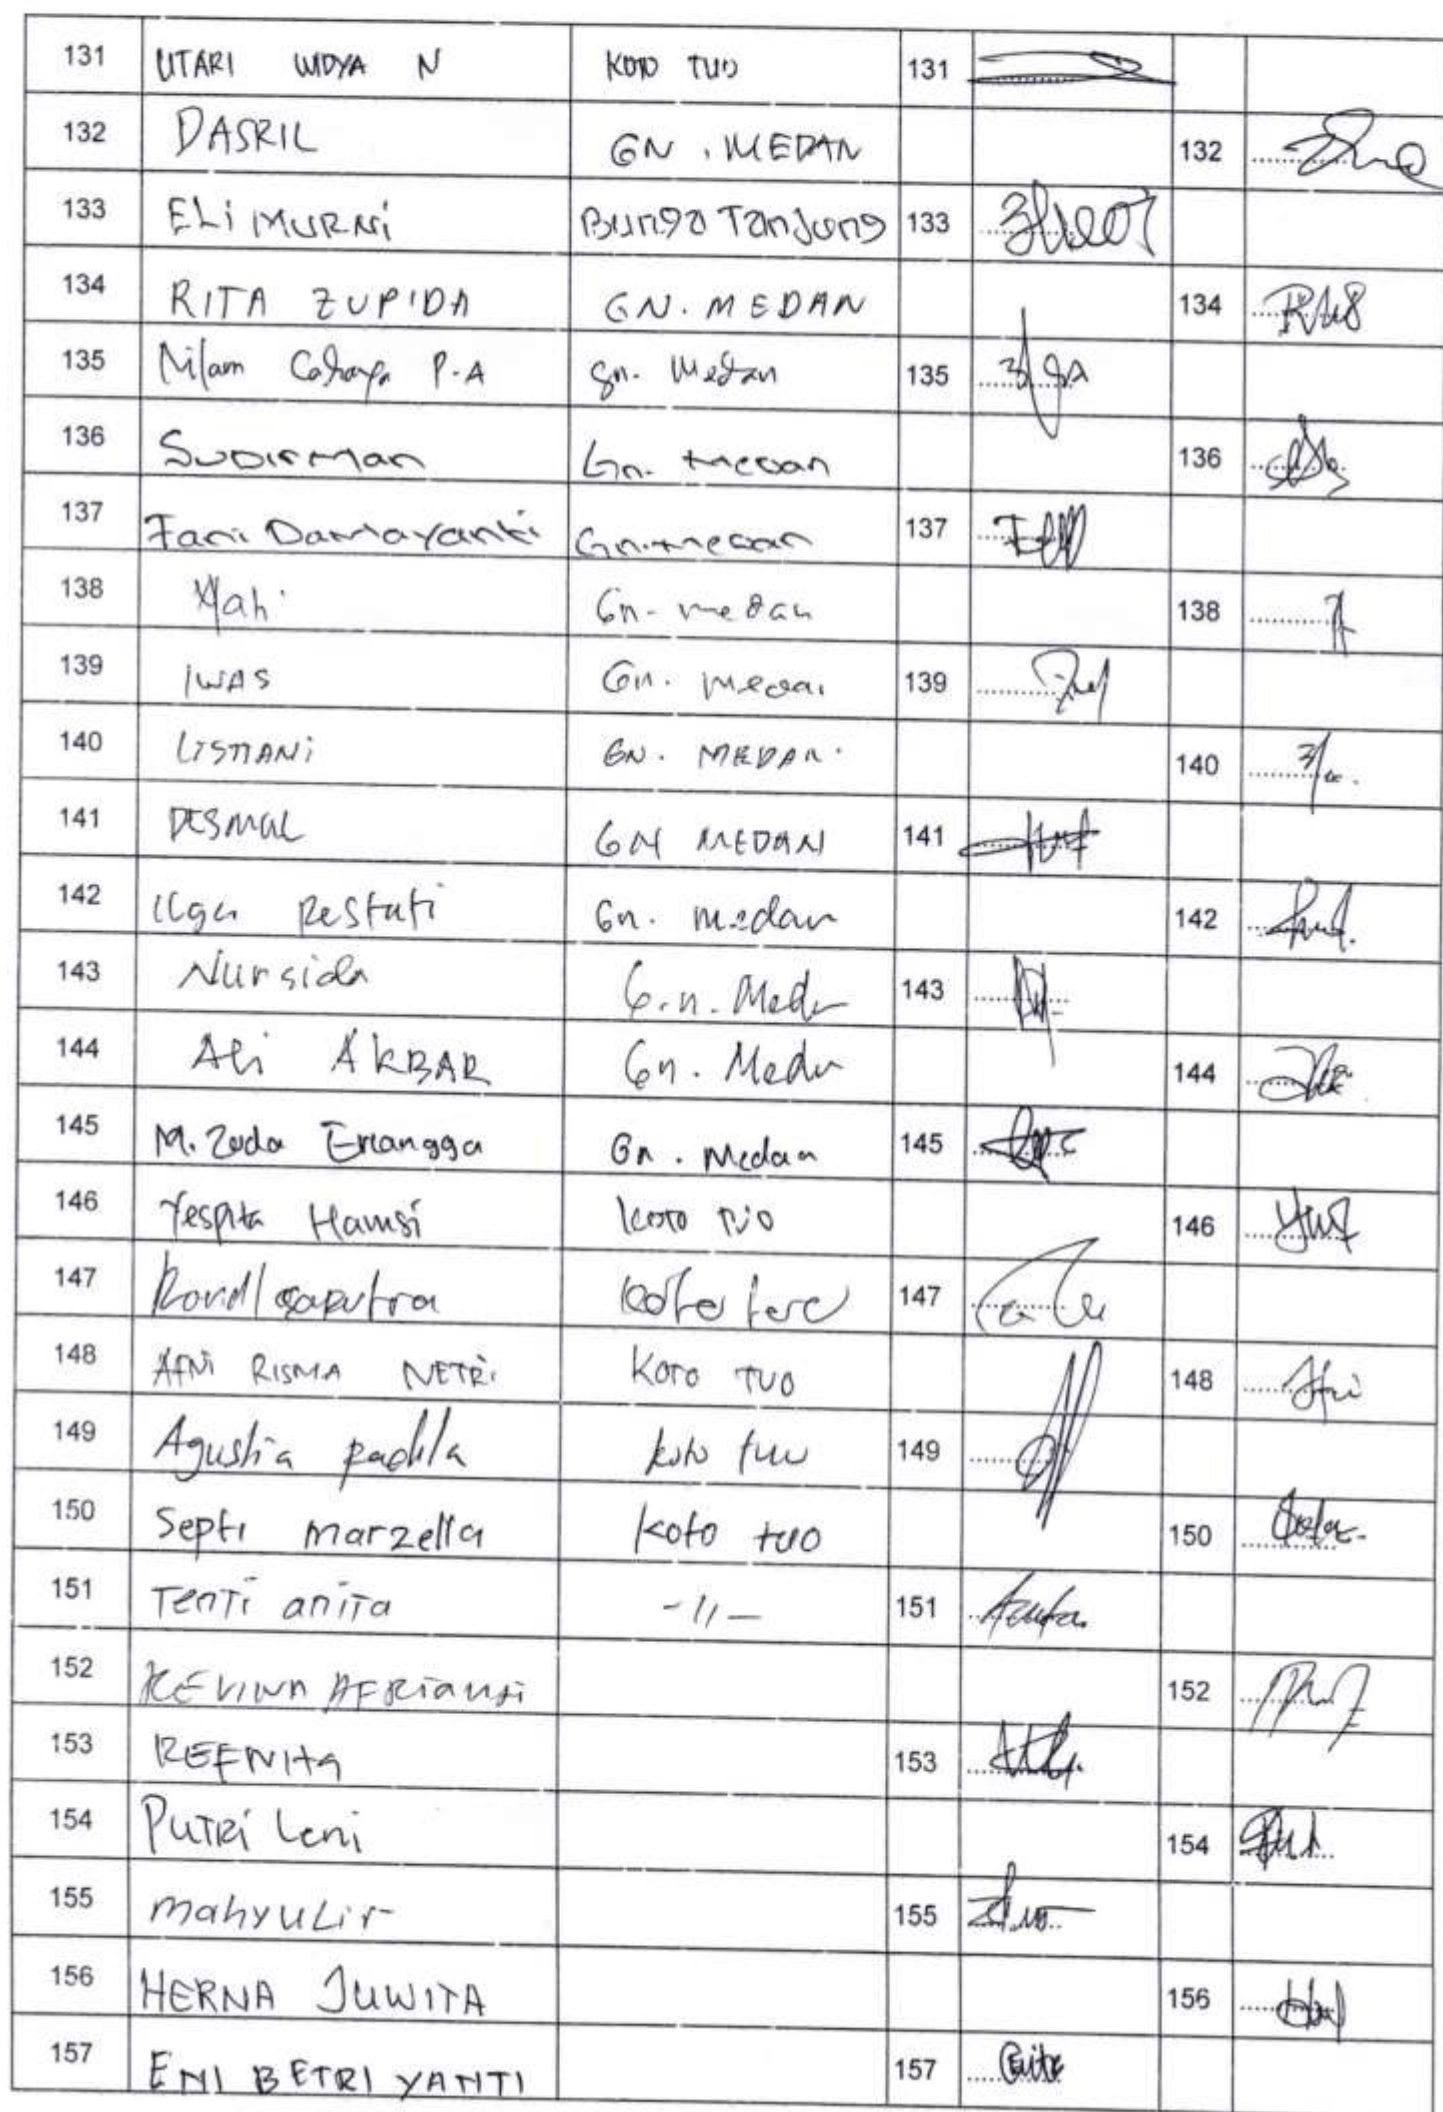 131 UTARI WIDYA N KOTO TUO 131
132 DASRIL GN. MEDAN 132
133 ELi MURNi Bunga Tanjung 133
134 RITA ZUPIDA GN. MEDAN 134
135 Nilam Cahaya P.A Gn. Medan 135
136 SUDIRMan Gn. Medan 136
137 Fani Damayanti Gn. medan 137
138 Gn. medan 138
139 IWAS Gn. Medan 139
140 LISTIANi GN. MEDAN. 140
141 DESMAL GN MEDAN 141
142 Ilga Restuti Gn. medan 142
143 Nursida G.n. Medan 143
144 Ali AKBAR Gn. Medan 144
145 M. Zada Erlangga Gn. Medan 145
146 Yespita Hamsi KOTO TUO 146
147 saputra 147
148 AFNI RISMA NETRI KOTO TUO 148
149 Agustia padila koto tuo 149
150 Septi marzella Koto tuo 150
151 Tenti anita -11- 151
152 152
153 REFNITA 153
154 PUTRi Leni 154
155 mahyuLir 155
156 HERNA JUWITA 156
157 ENI BETRI YANTI 157